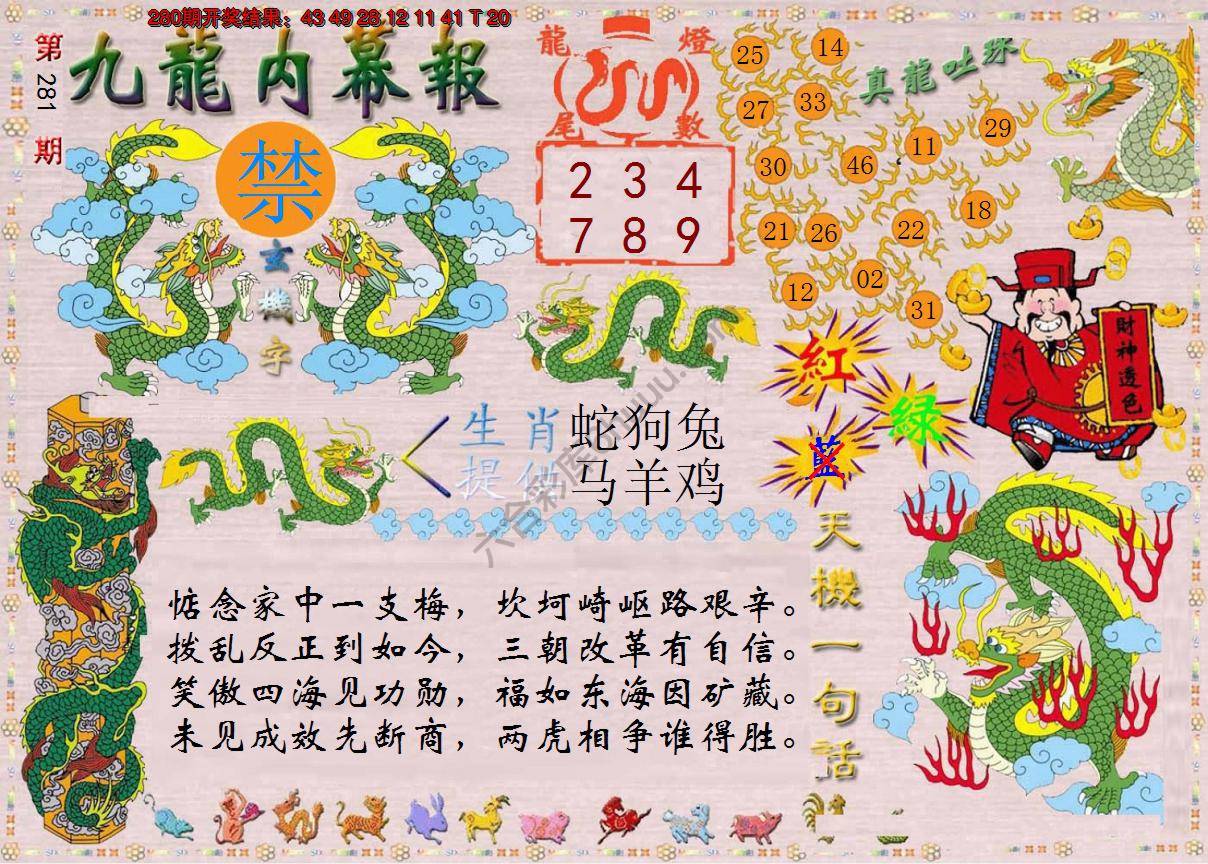 280期开奖结果：43 49 28 12 11 41 T 20
第281期
九龍内幕報
禁
玄機字
龍燈
尾數
2 3 4
7 8 9
真龍吐珠
25 14
27 33
11 29
30 46
21 26 22 18
12 02 31
財神透色
紅
綠
藍
生肖 蛇狗兔
提供 马羊鸡
天機一句話
惦念家中一支梅，坎坷崎岖路艰辛。
拨乱反正到如今，三朝改革有自信。
笑傲四海见功勋，福如东海因矿藏。
未见成效先断商，两虎相争谁得胜。